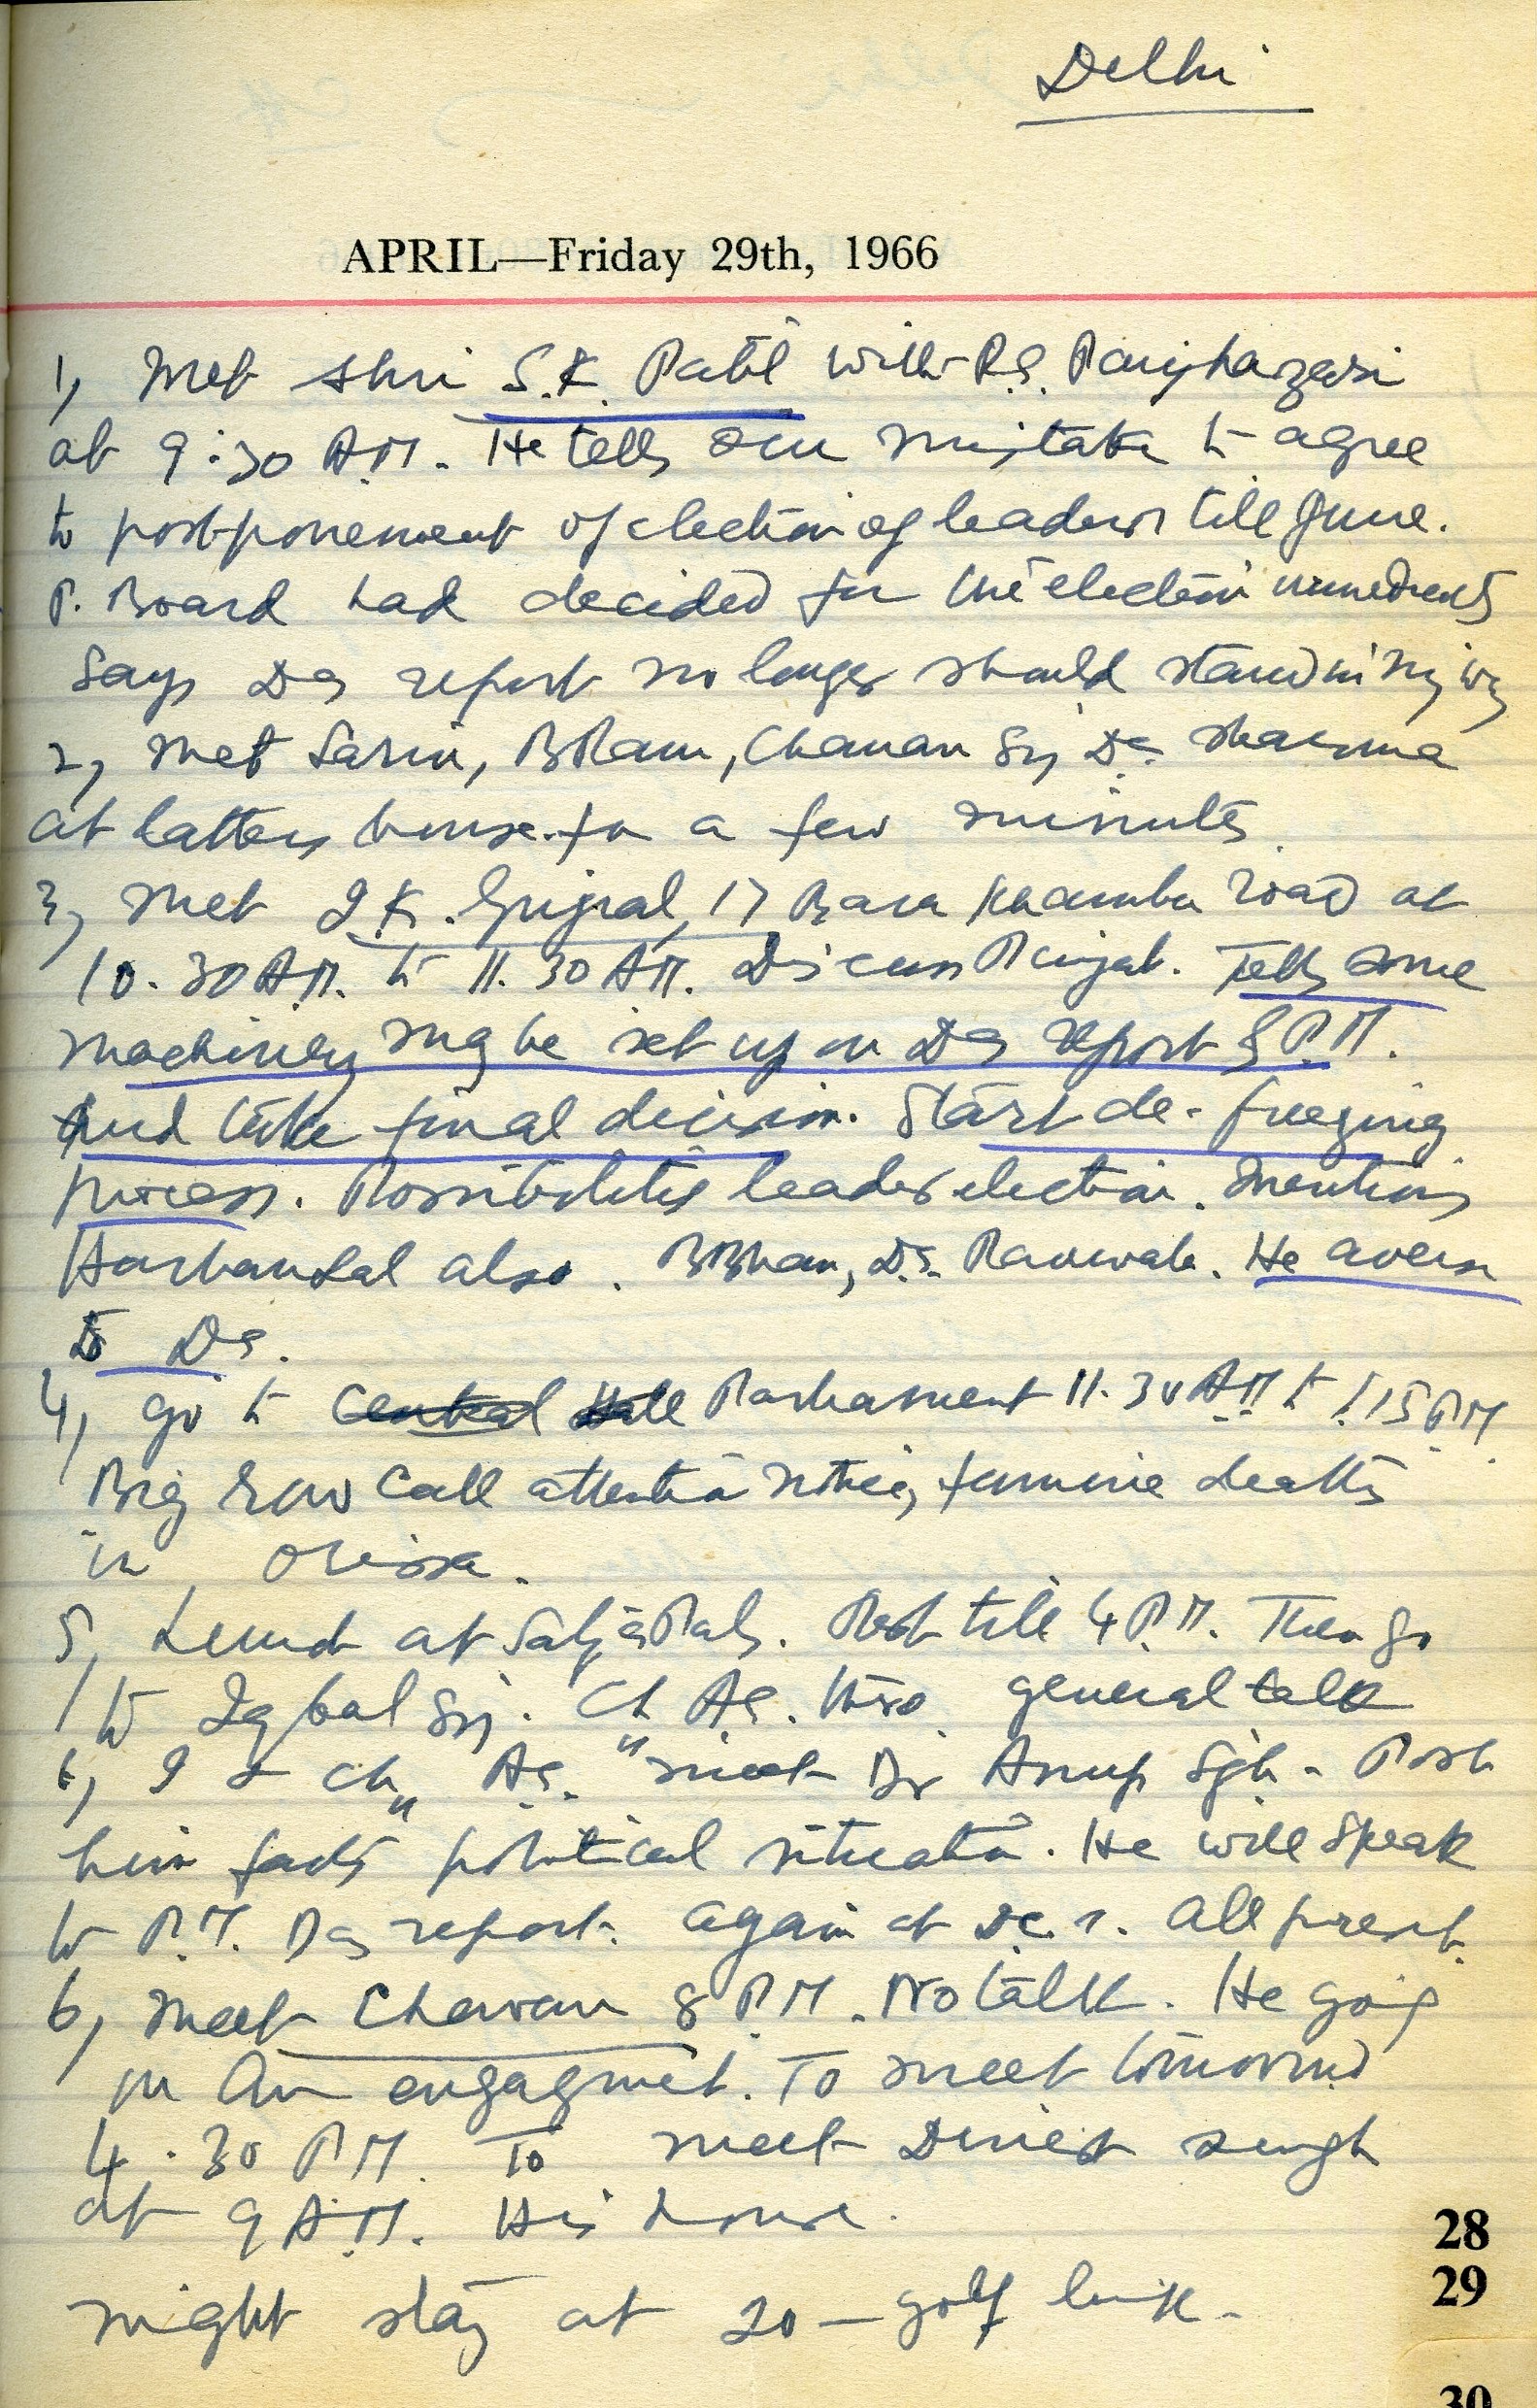 Delhi
APRIL—Friday 29th, 1966
1, Met Shri S.K. Patil with P.S.
at 9.30 A.M. He tells our mistake to agree
to postponement of election of leader till June.
P. Board had decided for the election
Says Das report no longer should stand in my way
2, Met Sarin, BRam, Chanan Sij, D.S. Sharma
at latters house for a few minutes
3, Met I.K. Gujral, 17 Bara Khamba Road at
10.30 A.M. to 11.30 AM. Discuss Punjab. Tells some
machinery may be set up on Das report & P.M.
And take final decision. Start de-freezing
process. Possibilities leader election. Mentions
Harbanslal also. BBhan, D.S. He averse
to Das.
4, go to Central Hall Parliament 11.30 AM to 1.15 PM
Big Row Call attention notice, famine deaths
in Orissa.
5, Lunch at. Rest till 4 P.M. Then go
to Iqbal Sij. Ch A.S. also. general talk
6, I & Ch" A.S." meet Dr Anup Sgh - Post
him facts political situation. He will speak
to P.M. Das report. Again at all present.
6, Meet Chavan 8 P.M. No talk. He going
on An engagmet. To meet tomorrow
4.30 PM. To meet Dinesh Singh
at 9 A.M. His house.
night stay at 20 - golf link -
28
29
30